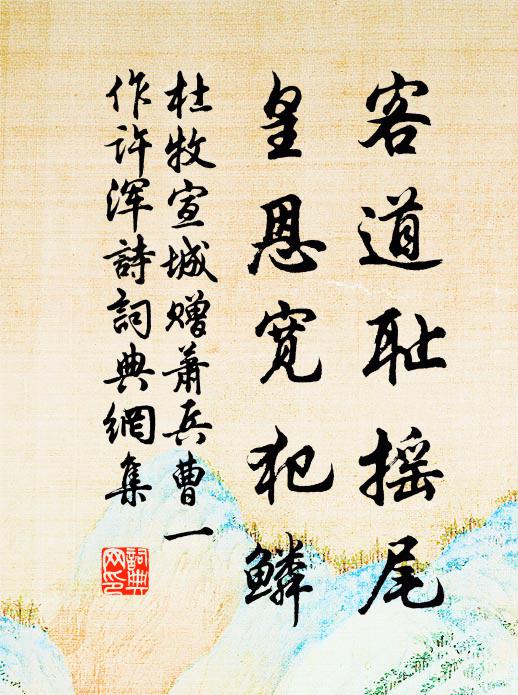 客道耻摇尾
皇恩宽犯鳞
杜牧宣城赠萧兵曹一
作许浑詩詞典網集
詞典
网印